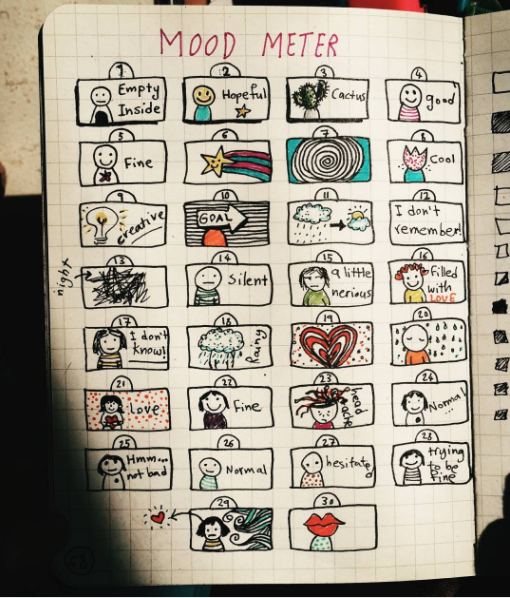 MOOD METER
1
Empty
Inside
2
Hopeful
3
Cactus
4
good
5
Fine
6
7
8
Cool
9
creative
10
GOAL
11
12
I don't
remember!
night
13
14
Silent
15
a little
nerious
16
Filled
with
LOVE
17
I don't
know!
18
Rainy
19
20
21
Love
22
Fine
23
head
ache
24
Normal
...
25
Hmm...
not bad
26
Normal
27
hesitated
28
trying
to be
fine
29
30